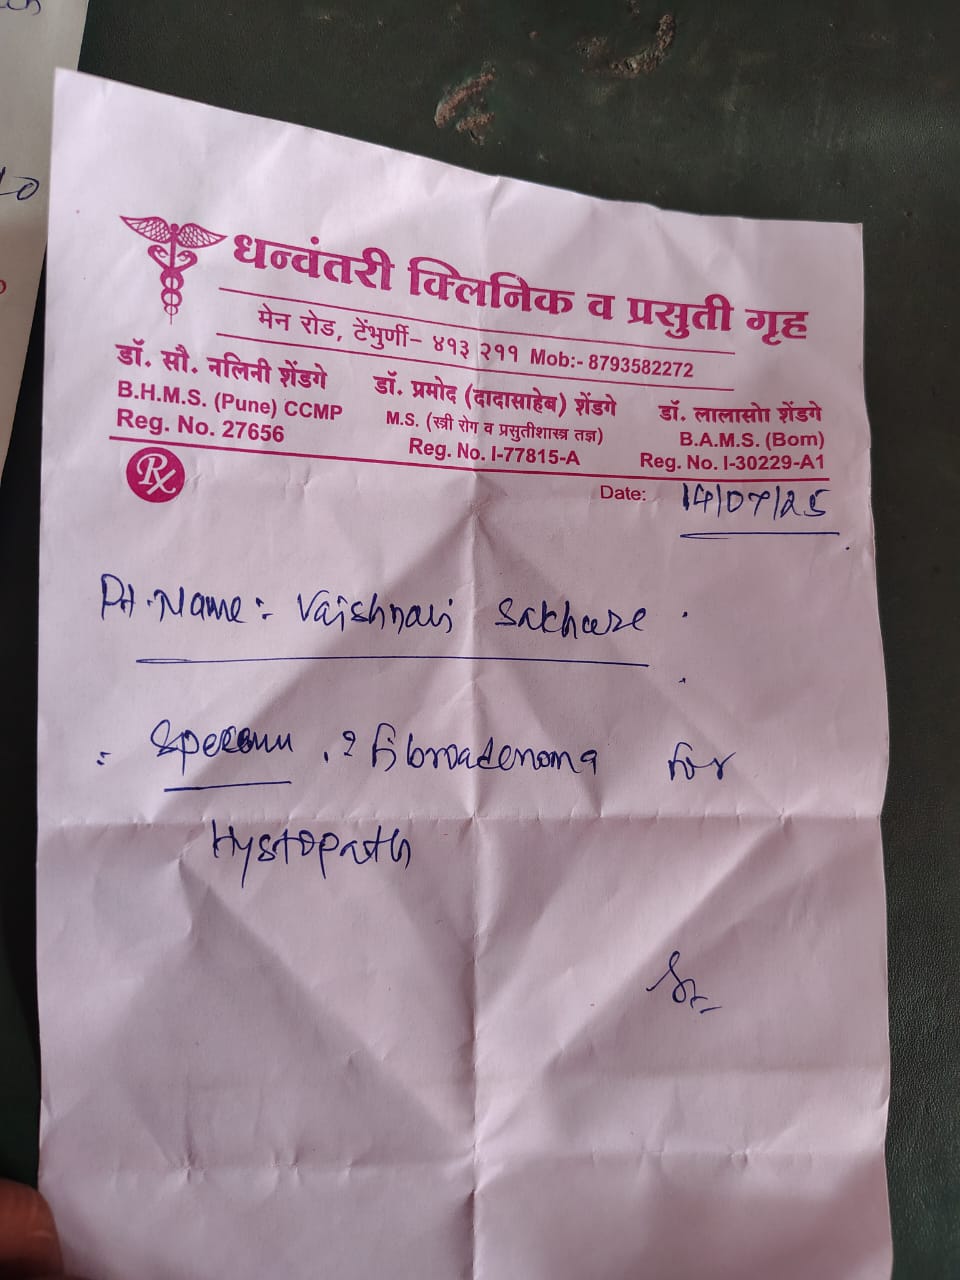 धन्वंतरी क्लिनिक व प्रसुती गृह
मेन रोड, टेंभुर्णी- ४१३ २११ Mob:- 8793582272
डॉ. सौ. नलिनी शेंडगे
B.H.M.S. (Pune) CCMP
Reg. No. 27656
डॉ. प्रमोद (दादासाहेब) शेंडगे
M.S. (स्त्री रोग व प्रसुतीशास्त्र तज्ञ)
Reg. No. I-77815-A
डॉ. लालासो शेंडगे
B.A.M.S. (Bom)
Reg. No. I-30229-A1
Rx
Date: 14/07/25
Pt. Name:- Vaishnavi Sakhare
? fibroadenoma for
Hystopath